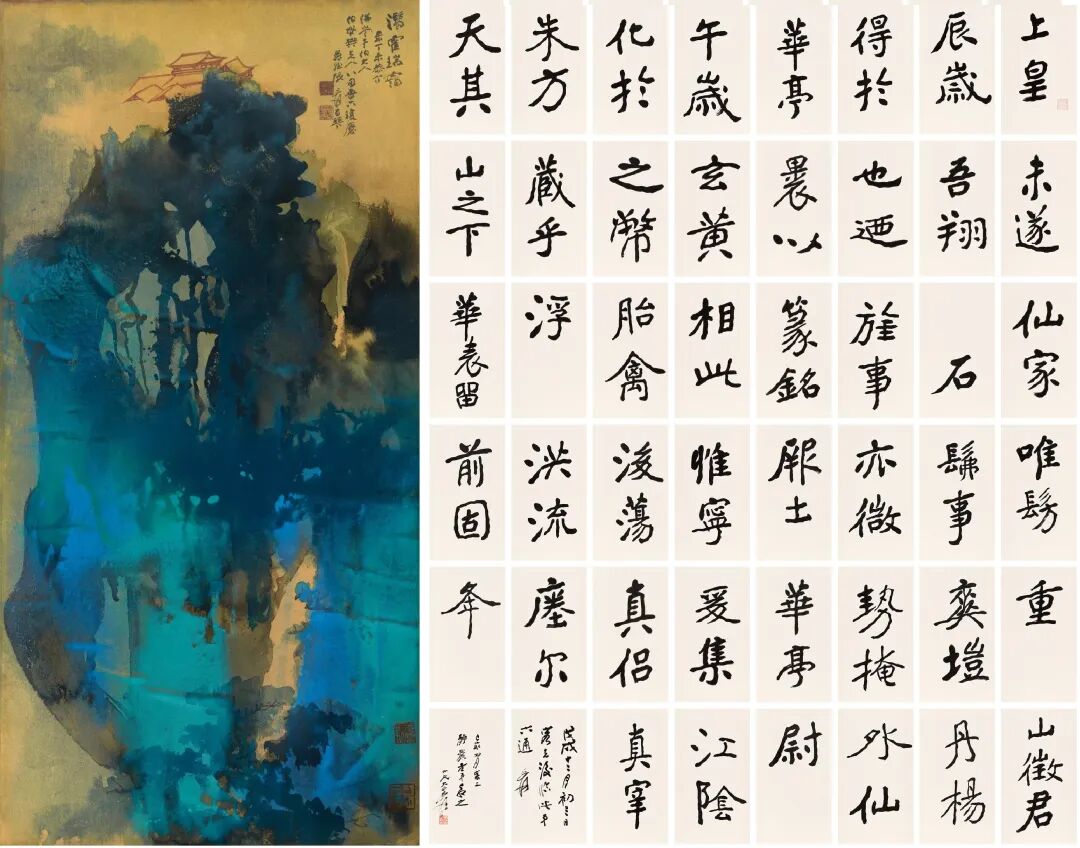 上皇
辰歲
得於
華亭
午歲
化於
朱方
天其
未遂
吾翔
也迺
裹以
玄黄
之幣
藏乎
山之下
仙家
石
旌事
篆銘
相此
胎禽
浮
華表留
唯髣
髴事
亦微
厥土
惟寧
後蕩
洪流
前固
重
爽塏
勢掩
華亭
爰集
真侶
瘞尔
山徵君
丹楊
外仙
尉
江陰
真宰
戊戌十二月初三日
六通 爰